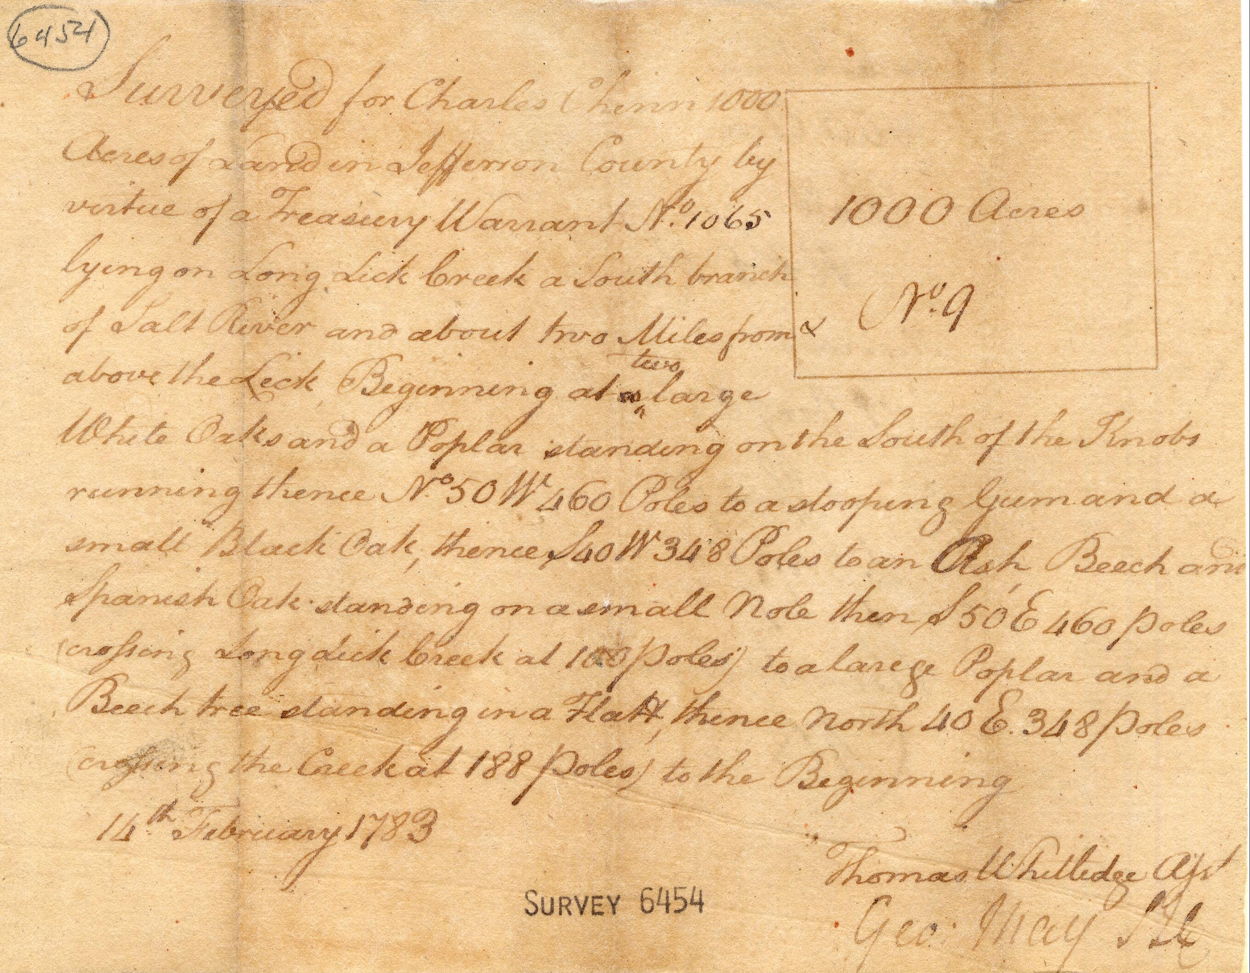 6454
Surveyed for Charles Chinn 1000
Acres of Land in Jefferson County by
virtue of a Treasury Warrant No. 1065
lying on Long Lick Creek a South branch
of Salt River and about two Miles from &
above the Lick Beginning at two large
White Oaks and a Poplar standing on the South of the Knobs
running thence No. 50 Wt 460 Poles to a stooping Gum and a
small Black Oak, thence S 40 W 348 Poles to an Ash Beech and
Spanish Oak standing on a small Nole then S 50 E 460 poles
(crossing Long Lick Creek at poles) to a large Poplar and a
Beech tree standing in a Flatt, thence North 40 E. 348 poles
(crossing the Creek at 188 poles) to the Beginning
14th February 1783
1000 Acres
No. 9
Thomas Whitledge Asst
Geo: May
SURVEY 6454